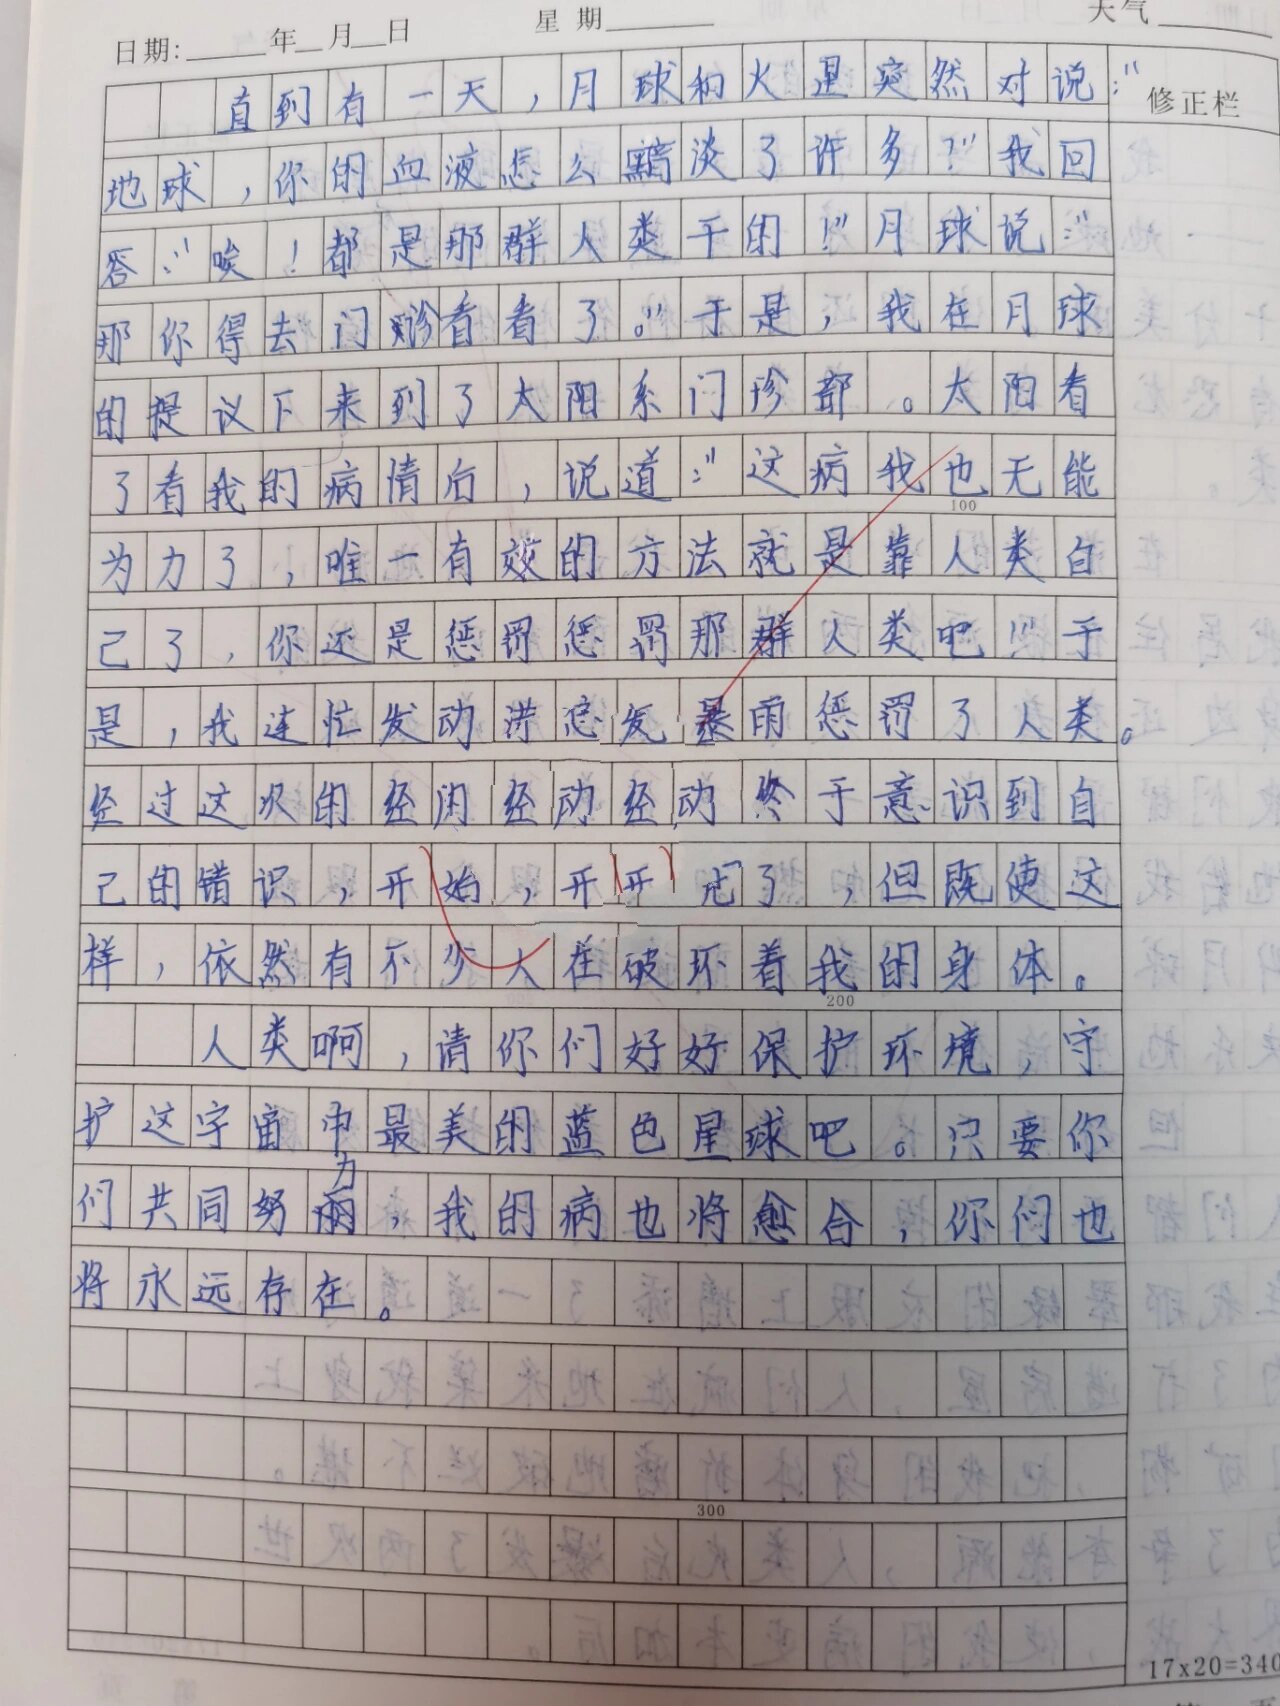 日期:____年__月__日 星期______ 天气____
直到有一天，月球和火星突然对说："
修正栏
地球，你的血液怎么黯淡了许多？"我回
答："唉！都是那群人类干的！"月球说："
那你得去门诊看看了。"于是，我在月球
的提议下来到了太阳系门珍部。太阳看
了看我的病情后，说道："这病我也无能
100
为力了，唯一有效的方法就是靠人类自
己了，你还是惩罚惩罚那群人类吧！"于
是，我连忙发动洪 发暴雨惩罚了人类。
经过这次的经 经动经动终于意识到自
己的错识，开始，开开 了，但既使这
样，依然有不少人在破坏着我的身体。
200
人类啊，请你们好好保护环境，守
护这宇宙中最美的蓝色星球吧。只要你
们共同努力，我的病也将愈合，你们也
将永远存在。
300
17x20=340